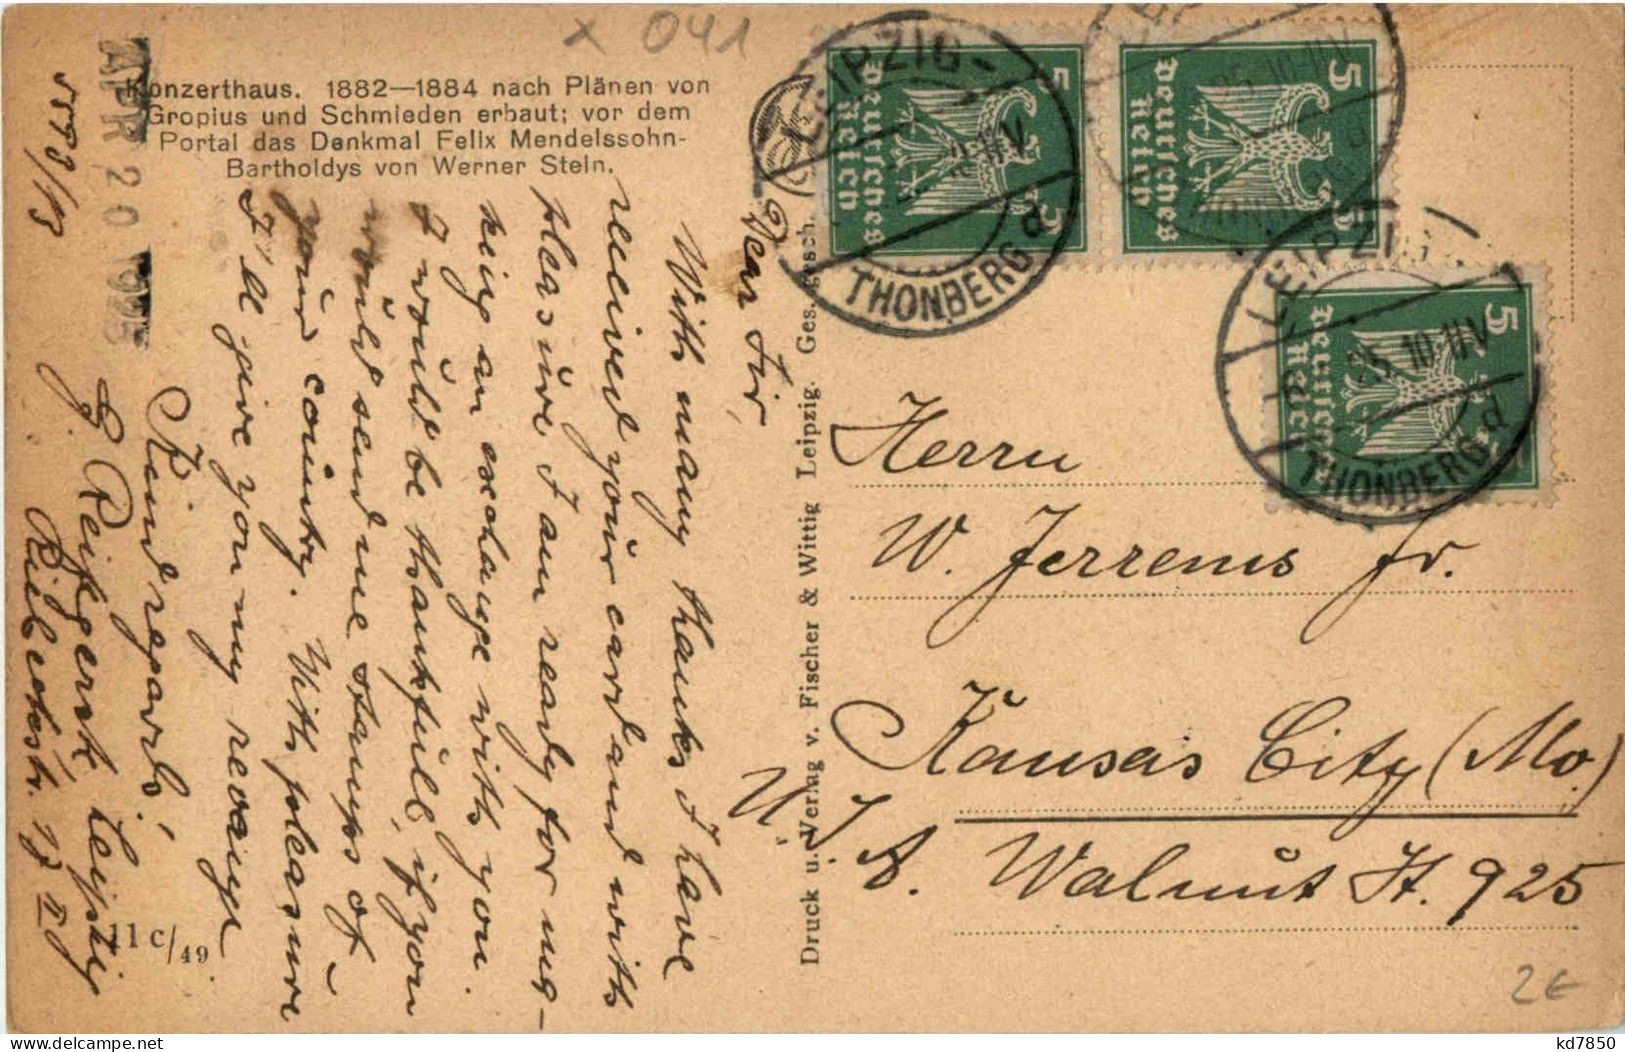 x 041
Konzerthaus. 1882—1884 nach Plänen von
Gropius und Schmieden erbaut; vor dem
Portal das Denkmal Felix Mendelssohn-
Bartholdys von Werner Stein.
APR 20 1925
Dear Sir,
With many thanks I have
received your card and with
pleasure I am ready for mu-
king an exchange with you.
I would be thankfull, if you
would send me stamps of
your country. With pleasure
I'll give you my revange
Kind regards!
Leipzig
11 c/49
Druck u. Verlag v. Fischer & Wittig Leipzig. Ges. gesch.
LEIPZIG-
THONBERG
d
5
Deutsches
Reich
5
5
Deutsches
Reich
5
LEIPZIG
25.10-11V
THONBERG
d
5
Deutsches
Reich
Herrn
W. Jerrems Jr.
Kansas City (Mo.)
U.S.A.
Walnut St. 925
2€
kd7850